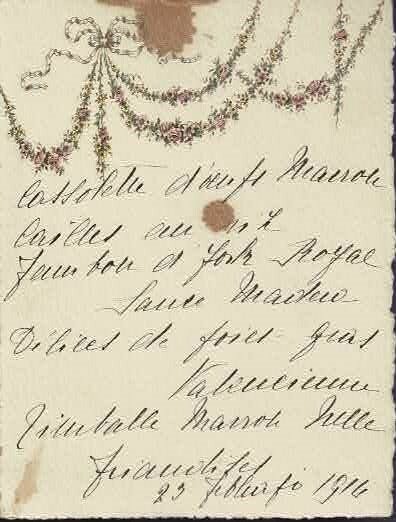 Cassolette d'œufs Marron
Cailles au riz
Jambon d'York Royal
Sauce Madère
Délices de foies-gras
Valencienne
Timballe Marron Nelle
Friandises
23 1914